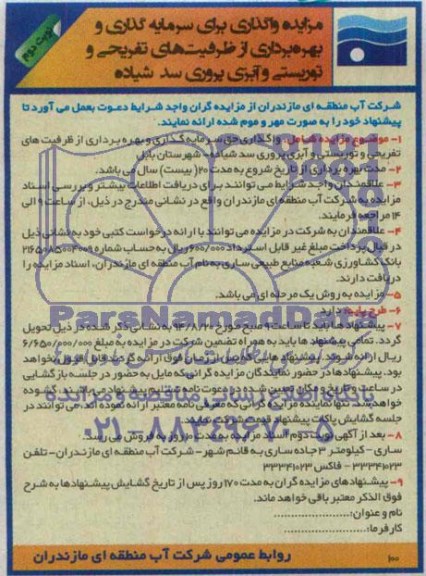 مزایده واگذاری برای سرمایه گذاری و
بهره‌برداری از ظرفیت‌های تفریحی و
توریستی و آبزی پروری سد شیاده
نوبت دوم
شرکت آب منطقه ای مازندران از مزایده گران واجد شرایط دعوت بعمل می آورد تا
پیشنهاد خود را به صورت مهر و موم شده ارائه نمایند.
۱- موضوع مزایده شامل: واگذاری حق سرمایه گذاری و بهره برداری از ظرفیت های
تفریحی و توریستی و آبزی پروری سد شیاده - شهرستان بابل
۲- مدت بهره برداری از تاریخ شروع به مدت ۲۰ (بیست) سال می باشد.
۳- علاقمندان واجد شرایط می توانند برای دریافت اطلاعات بیشتر و بررسی اسناد
مزایده به شرکت آب منطقه ای مازندران واقع در نشانی مندرج در ذیل، از ساعت ۹ الی
۱۴ مراجعه فرمایند.
۴- علاقمندان به شرکت در مزایده می توانند با ارائه درخواست کتبی خود به نشانی ذیل
در قبال پرداخت مبلغ غیر قابل استرداد ۶۰۰/۰۰۰ ریال به حساب شماره
بانک کشاورزی شعبه منابع طبیعی ساری به نام آب منطقه ای مازندران، اسناد مزایده را
دریافت دارند.
۵- مزایده به روش یک مرحله ای می باشد.
۶- طرح پایه: دارد.
۷- پیشنهادها باید تا ساعت ۹ صبح مورخ به نشانی ذکر شده در ذیل تحویل
گردد. تمامی پیشنهادها باید به همراه تضمین شرکت در مزایده به مبلغ ۶/۶۵۰/۰۰۰/۰۰۰
ریال ارائه شوند. پیشنهادهایی که پس از زمان فوق ارائه گردند قابل قبول نخواهد
بود. پیشنهادها در حضور نمایندگان مزایده گرانی که مایل به حضور در جلسه بازگشایی
در ساعت و تاریخ و مکان تعیین شده در دعوت نامه تسلیم پیشنهاد می باشند، گشوده
خواهد شد. تنها نماینده مزایده گرانی که معرفی نامه معتبر ارائه نموده اند، می توانند در
جلسه گشایش پاکات پیشنهاد قیمت شرکت نمایند.
۸- بعد از آگهی نوبت دوم اسناد مزایده به مدت روز به فروش می رسد.
ساری - کیلومتر ۳ جاده ساری به قائم شهر - شرکت آب منطقه ای مازندران - تلفن
۳۳۳۴۱۰۲۳ - فاکس ۳۳۳۴۱۰۲۳
۹- پیشنهادهای مزایده گران به مدت ۱۷۰ روز پس از تاریخ گشایش پیشنهادها به شرح
فوق الذکر معتبر باقی خواهد ماند.
نام و عنوان:
کارفرما:
روابط عمومی شرکت آب منطقه ای مازندران
۱۰۰
ParsNamadData
پایگاه اطلاع رسانی مناقصه و مزایده
۰۲۱-۸۸۳۴۹۶۷۰-۵